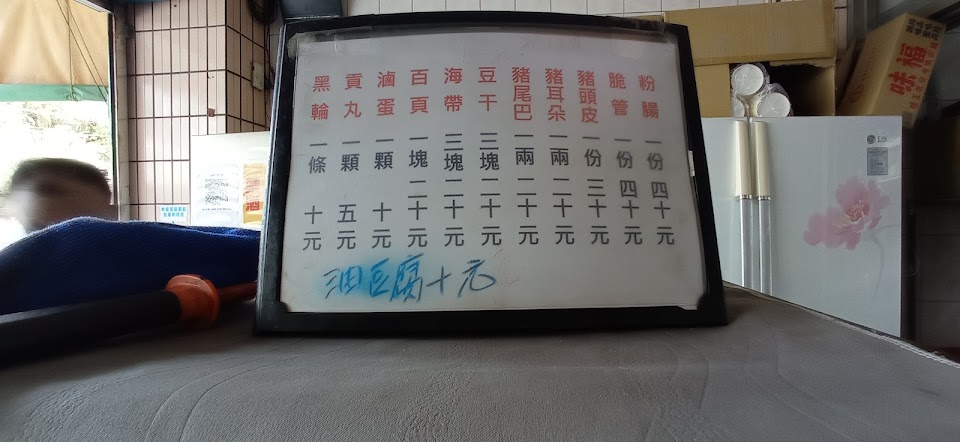 粉腸一份四十元
脆管一份四十元
豬頭皮一份三十元
豬耳朵一兩二十元
豬尾巴一兩二十元
豆干三塊二十元
海帶三塊二十元
百頁一塊二十元
滷蛋一顆十元
貢丸一顆五元
黑輪一條十元
油豆腐十元
味福
LG